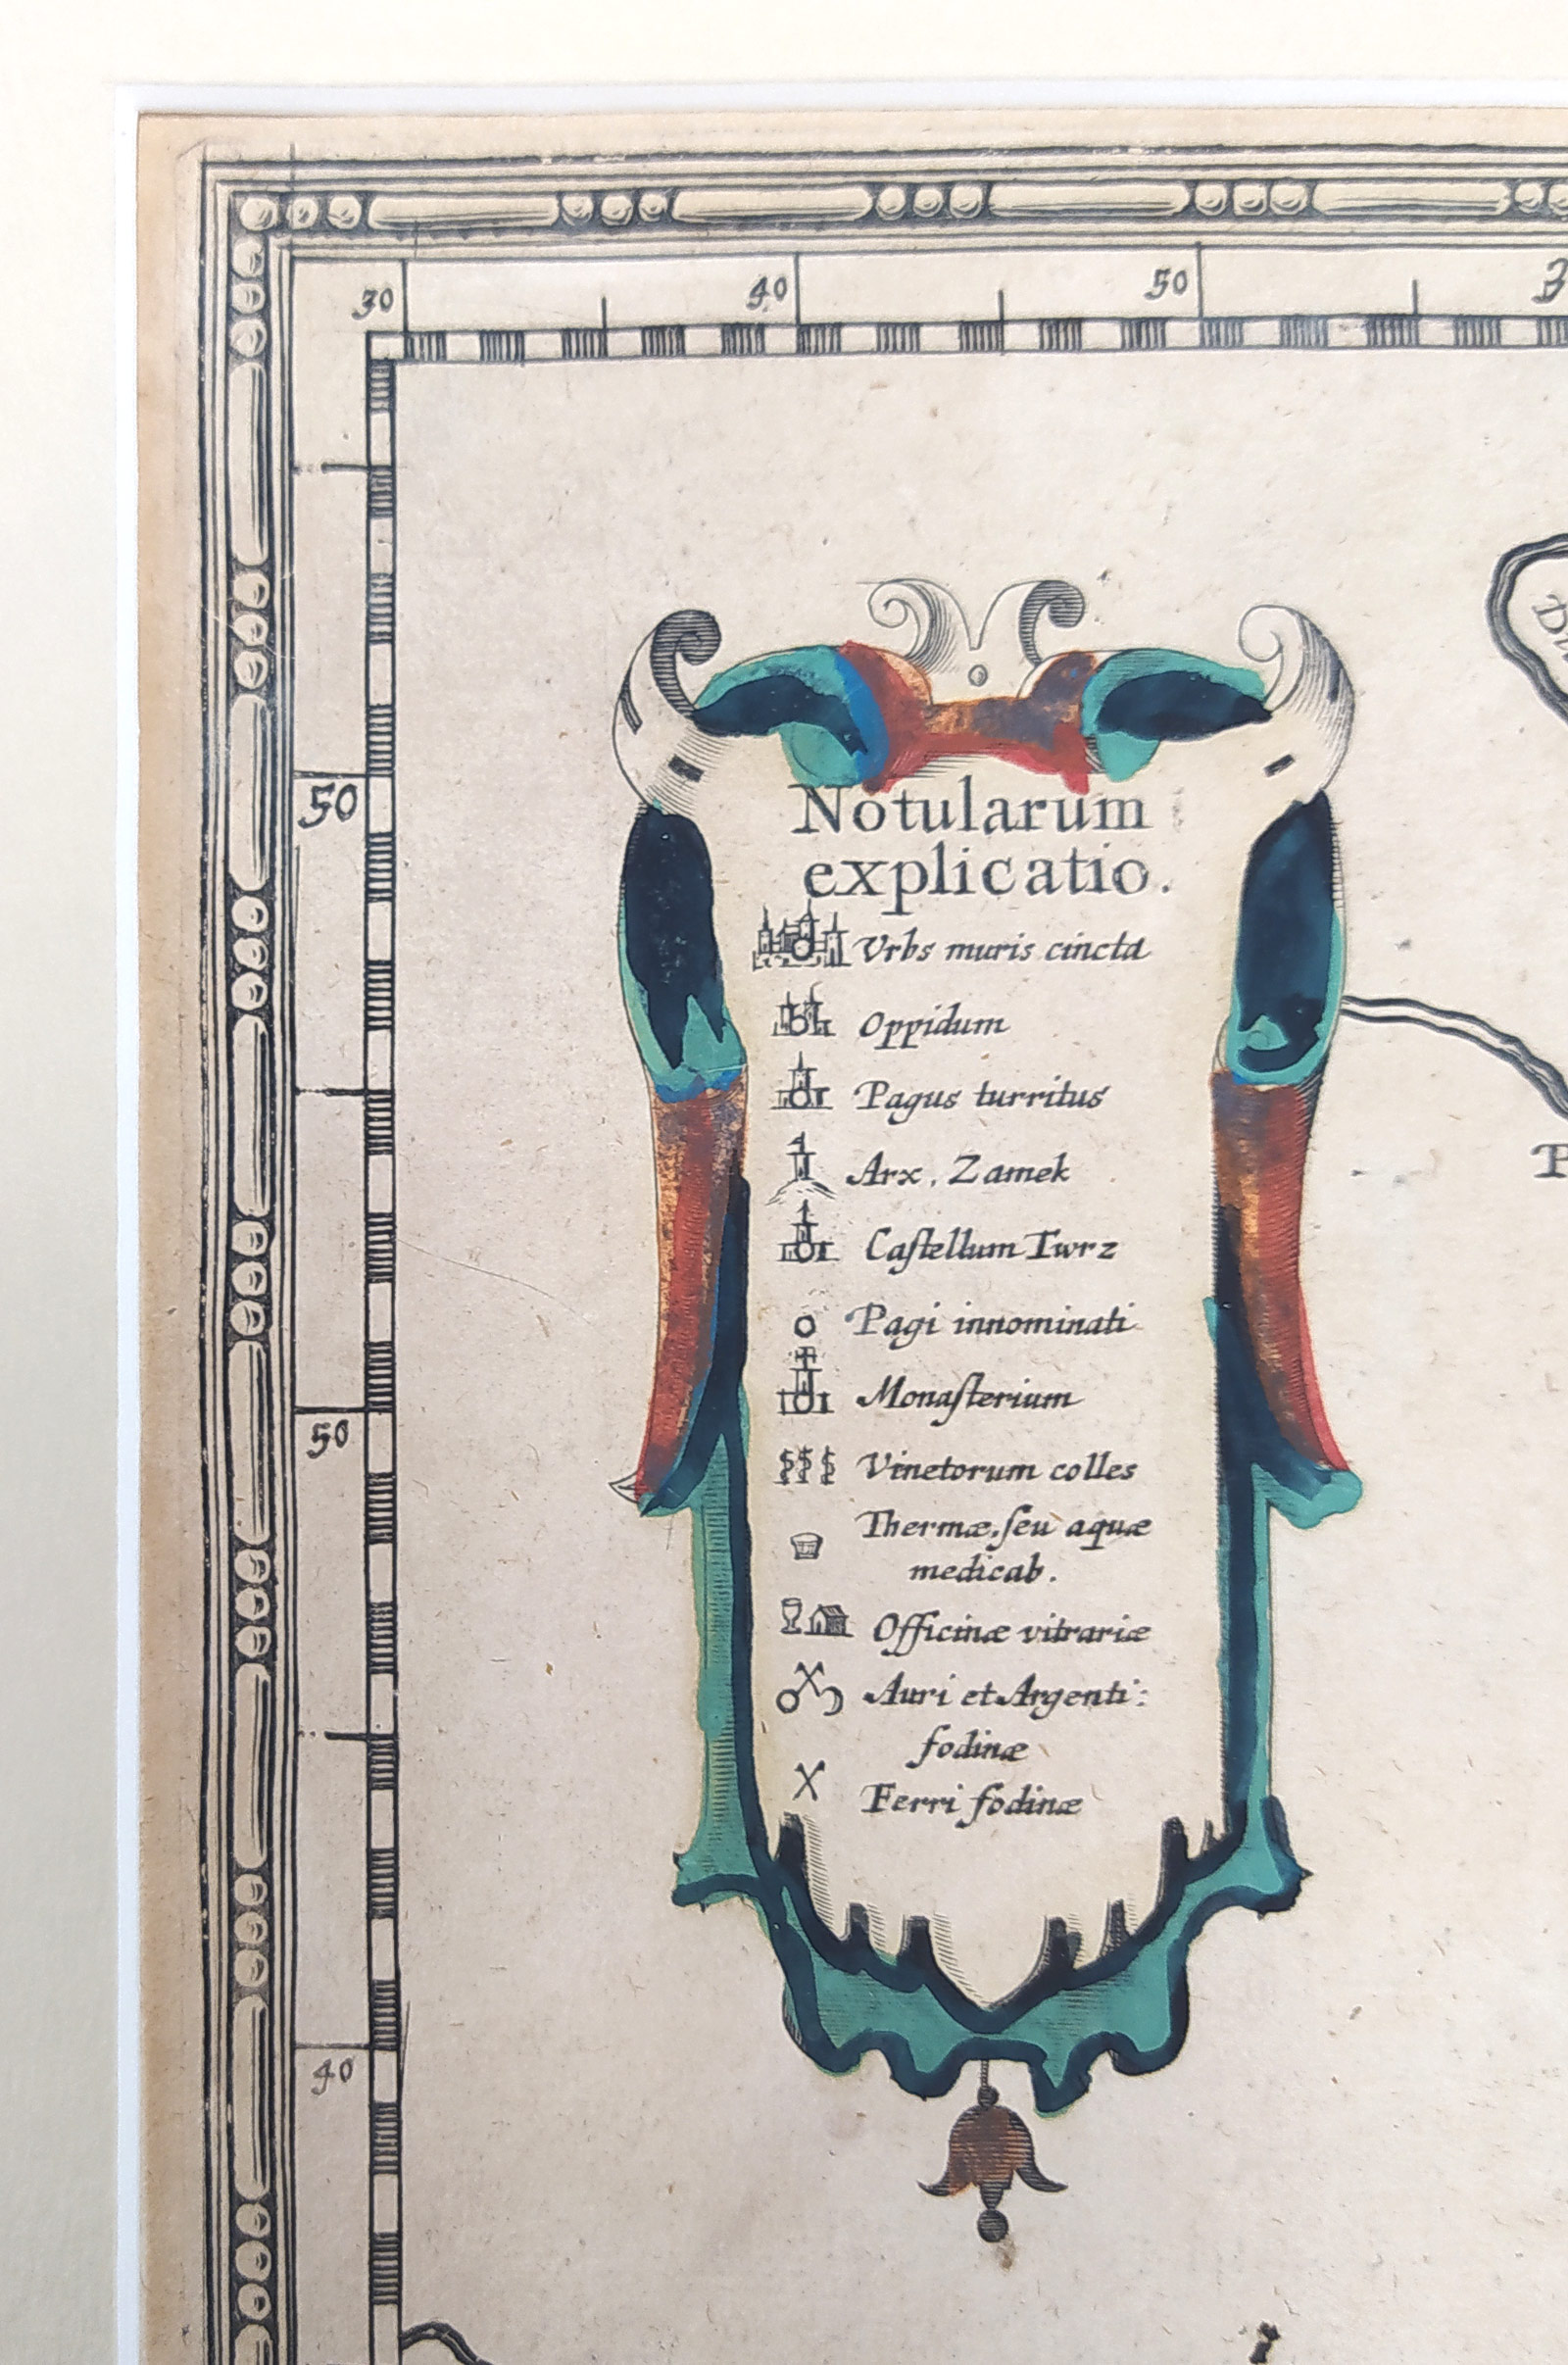 30 40 50
50
50
40
Notularum
explicatio.
Vrbs muris cincta
Oppidum
Pagus turritus
Arx, Zamek
Caſtellum Twrz
Pagi innominati
Monaſterium
Vinetorum colles
Thermæ, ſeu aquæ
medicab.
Officinæ vitrariæ
Auri et Argenti:
fodinæ
Ferri fodinæ